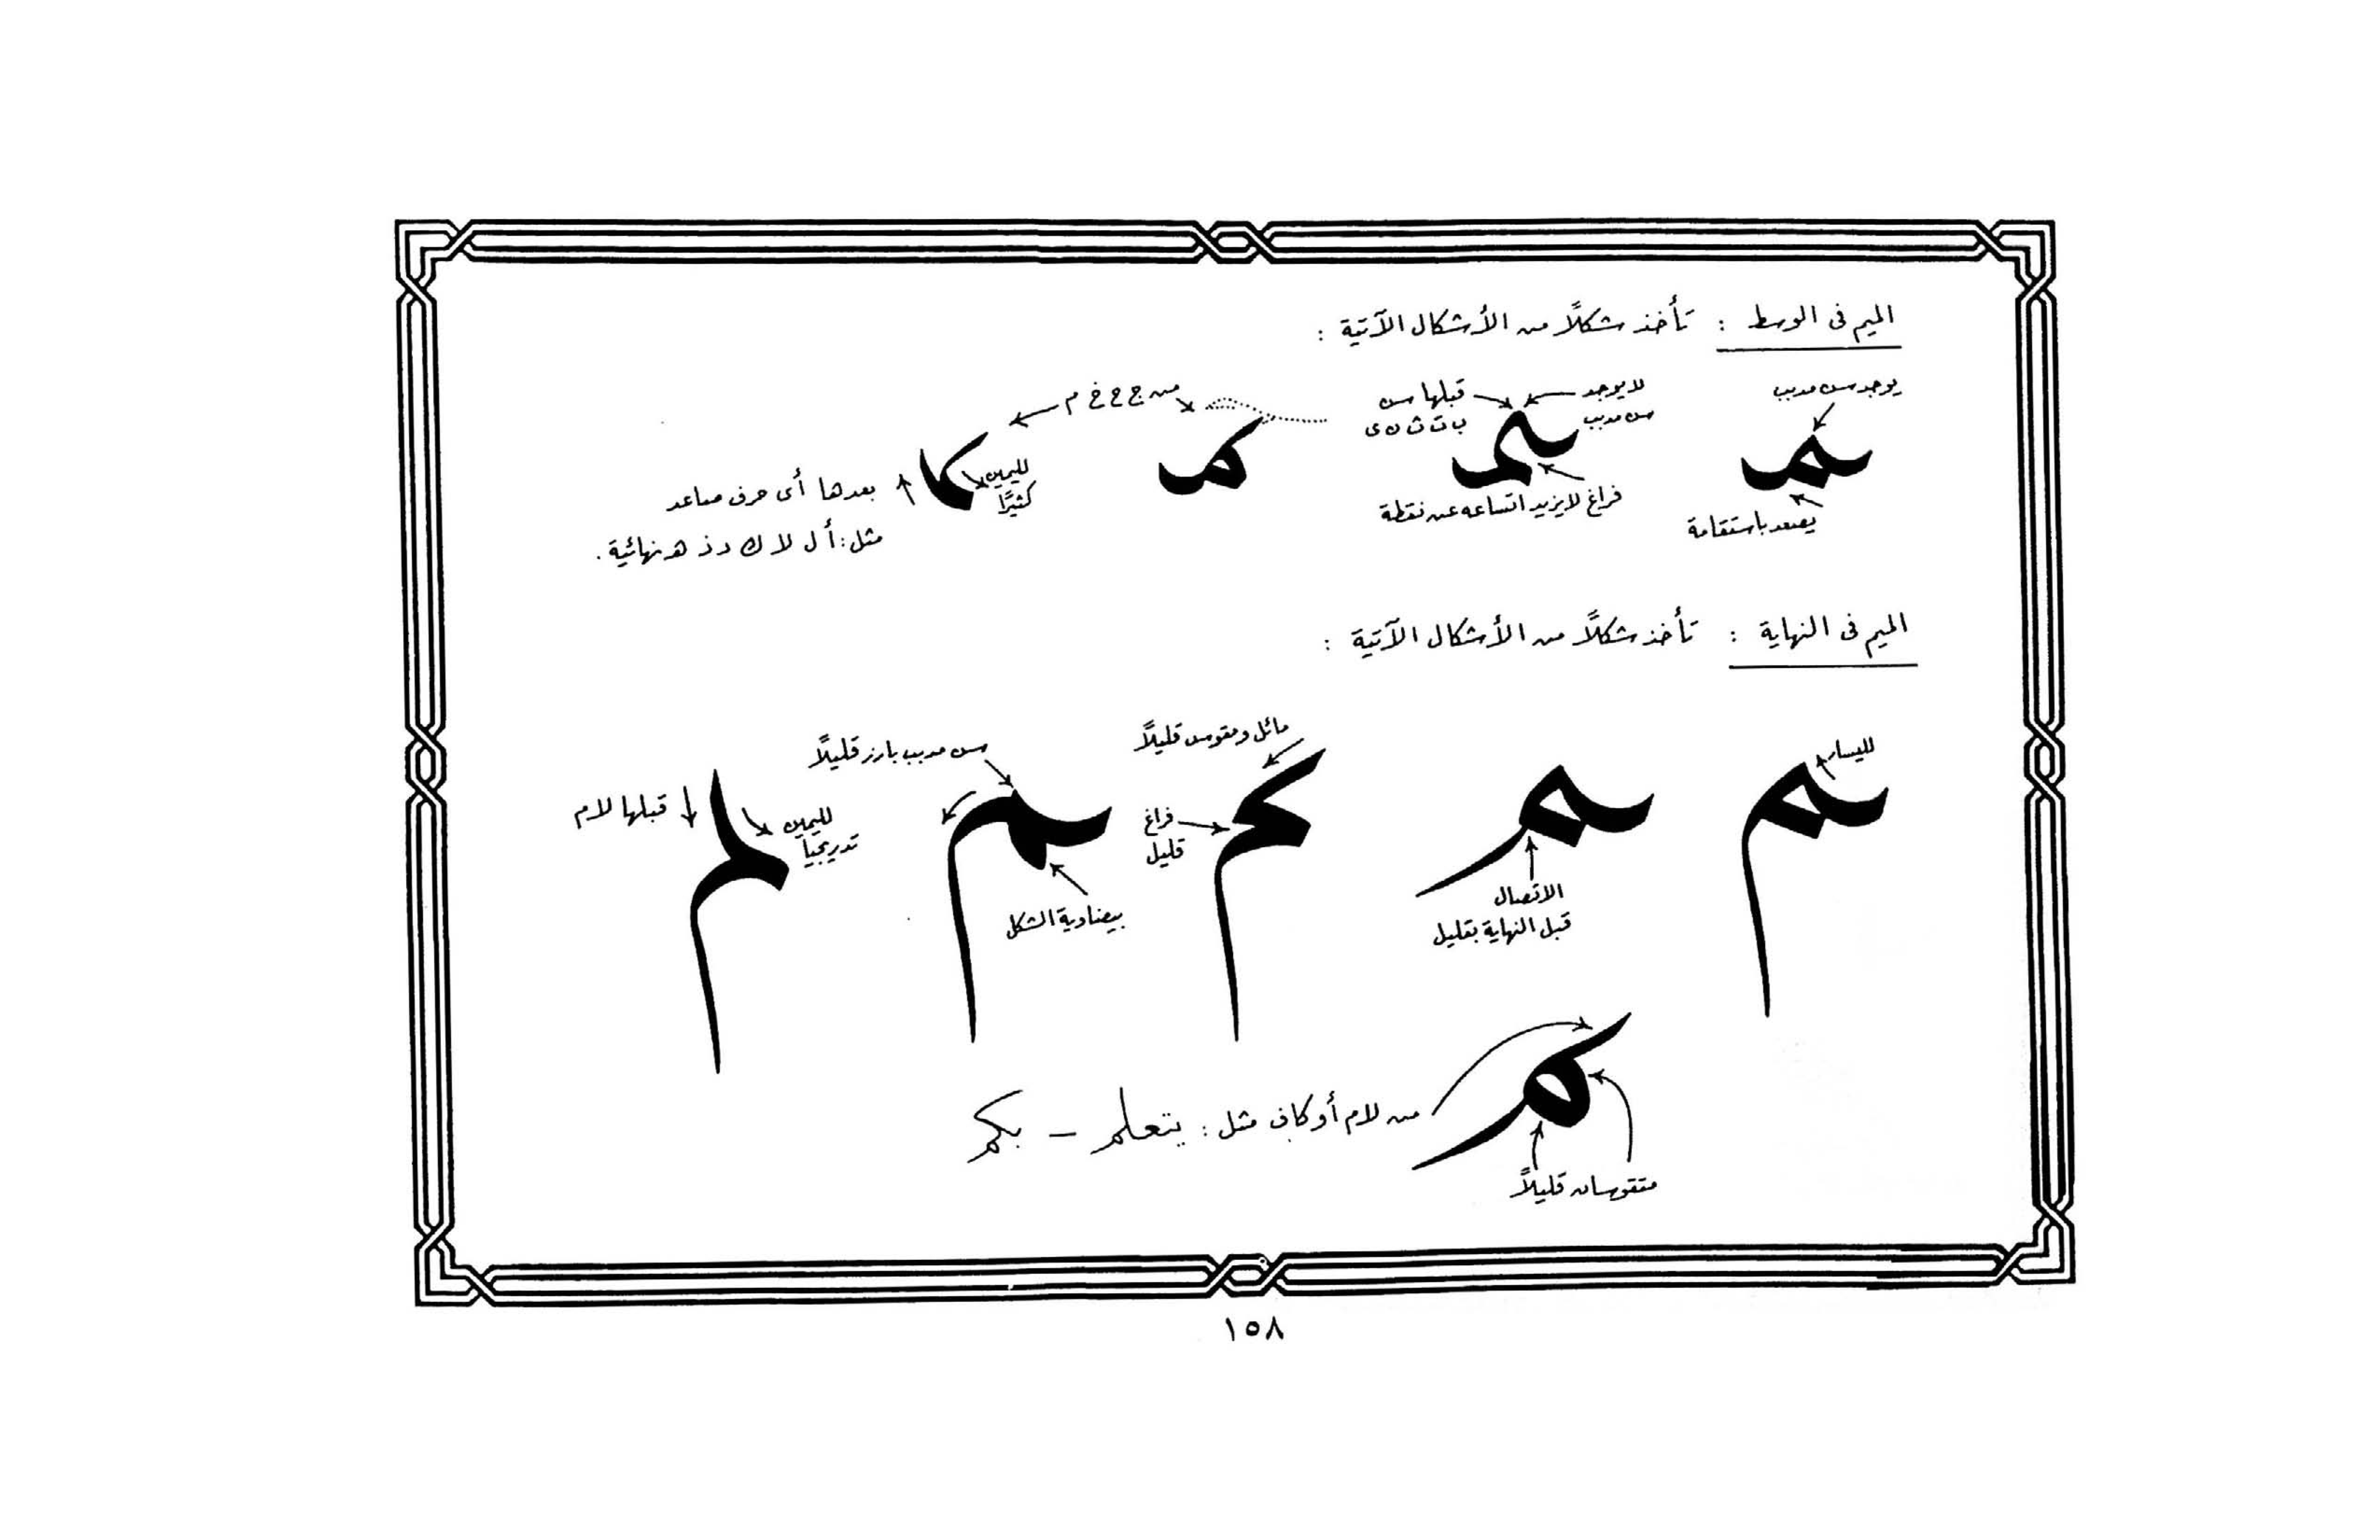 الميم فى الوسط : تأخذ شكلًا من الأشكال الآتية :
يوجد سن مدبب
يصعد باستقامة
لا يوجد
سن مدبب
قبلها سن
ب ت ث ن ى
فراغ لا يزيد اتساعه عن نقطة
من ج ح خ م
لليمين
كثيرًا
بعدها أى حرف صاعد
مثل : أ ل لا ك د ذ هـ نهائية .
الميم فى النهاية : تأخذ شكلًا من الأشكال الآتية :
لليسار
الاتصال
قبل النهاية بقليل
مائل ومقوس قليلًا
فراغ
قليل
سن مدبب بارز قليلًا
بيضاوية الشكل
لليمين
تدريجيًا
قبلها لام
من لام أو كاف مثل : يتعلم – بكم
متقوسان قليلًا
١٥٨